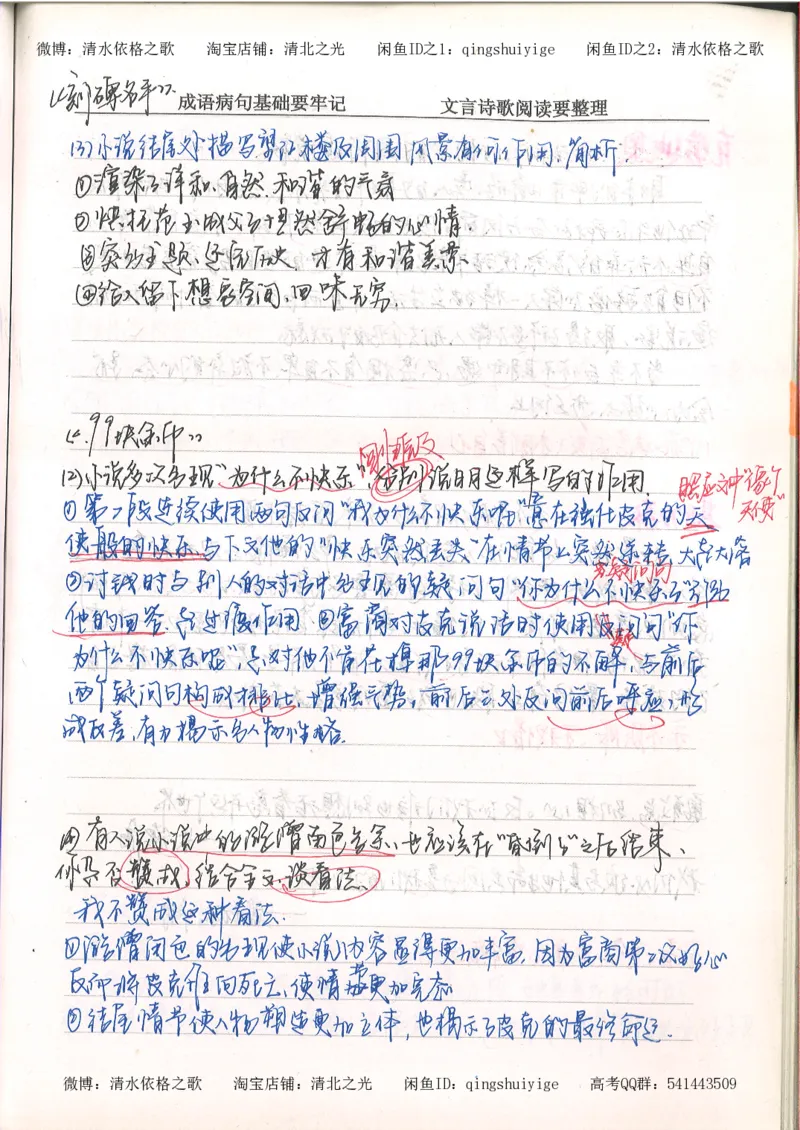 微博：清水依格之歌 淘宝店铺：清北之光 闲鱼ID之1：qingshuiyige 闲鱼ID之2：清水依格之歌
"刻碑名手"
成语病句基础要牢记 文言诗歌阅读要整理
(3)小说结尾处描写望江楼及周围风景有何作用,简析.
①渲染了祥和、自然、和谐的气氛
②烘托范玉成父子坦然舒畅的心情.
③突出主题、还完历史 才有和谐美景.
④给人留下想象空间,回味无穷.
"99块金币"
(2)小说多次出现"为什么不快乐"分别说明这样写的作用.
照应文中"像个天使"
①第一段连续使用两句反问"我为什么不快乐呢"意在强化皮克的天
使般的快乐,与下文他的"快乐突然丢失"在情节上突然逆转,
②讨钱时与别人的对话中出现的疑问句"你为什么不快乐了"引出
为疑问句
他的回答,起过渡作用.③富商对皮克说话时使用反问句"你
疑
为什么不快乐呢",是对他不肯花掉那99块金币的不解,与前后
两个疑问句构成排比,增强气势,前后三处反问前后呼应,形
成反差,有力揭示出人物性格.
④有人说小说中的 面色 多余,也应该在"昏倒了"之后结束、
你是否赞成,结合全文谈看法.
我不赞成这种看法.
① 的出现使小说内容显得更加丰富,因为富商第二次好心
反而将皮克推向死亡,使情节更加完整
②结尾情节使人物塑造更加立体,也揭示了皮克的最终命运.
微博：清水依格之歌 淘宝店铺：清北之光 闲鱼ID：qingshuiyige 高考QQ群：541443509